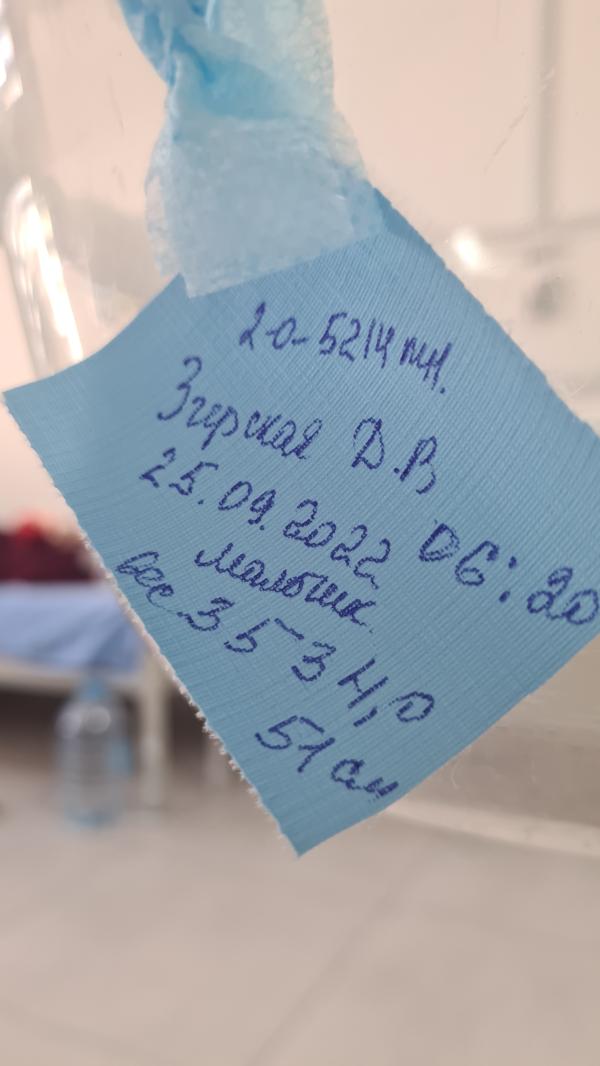 2-0-5214
Згерская Д.В
25.09.2022 06:20
мальчик
вес 3534,0
51 см